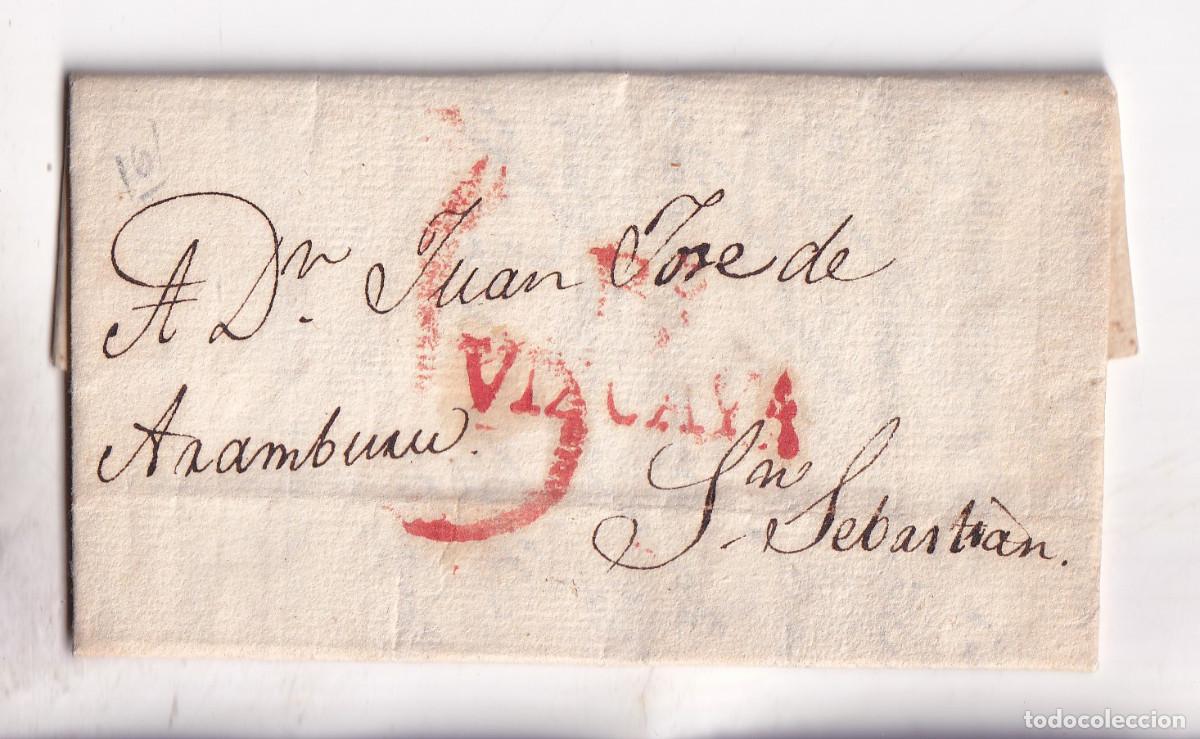 16
A Dn. Juan Jose de
VIZCAYA
5
Aramburu.
Sn Sebastiàn.
todocoleccion